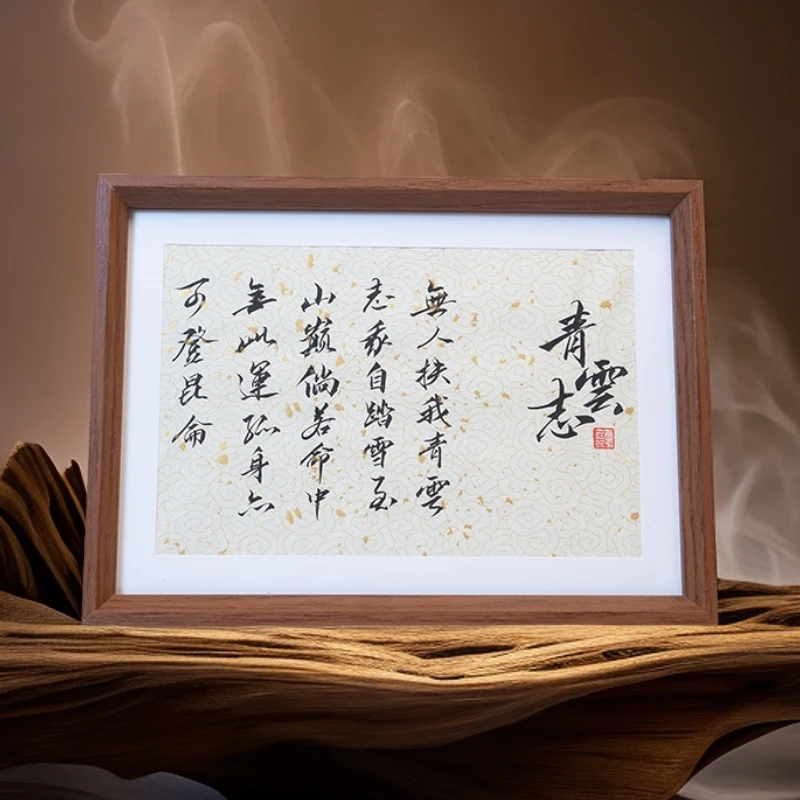 青雲志
無人扶我青雲
志我自踏雪至
山巔倘若命中
無此運孤身亦
可登昆侖